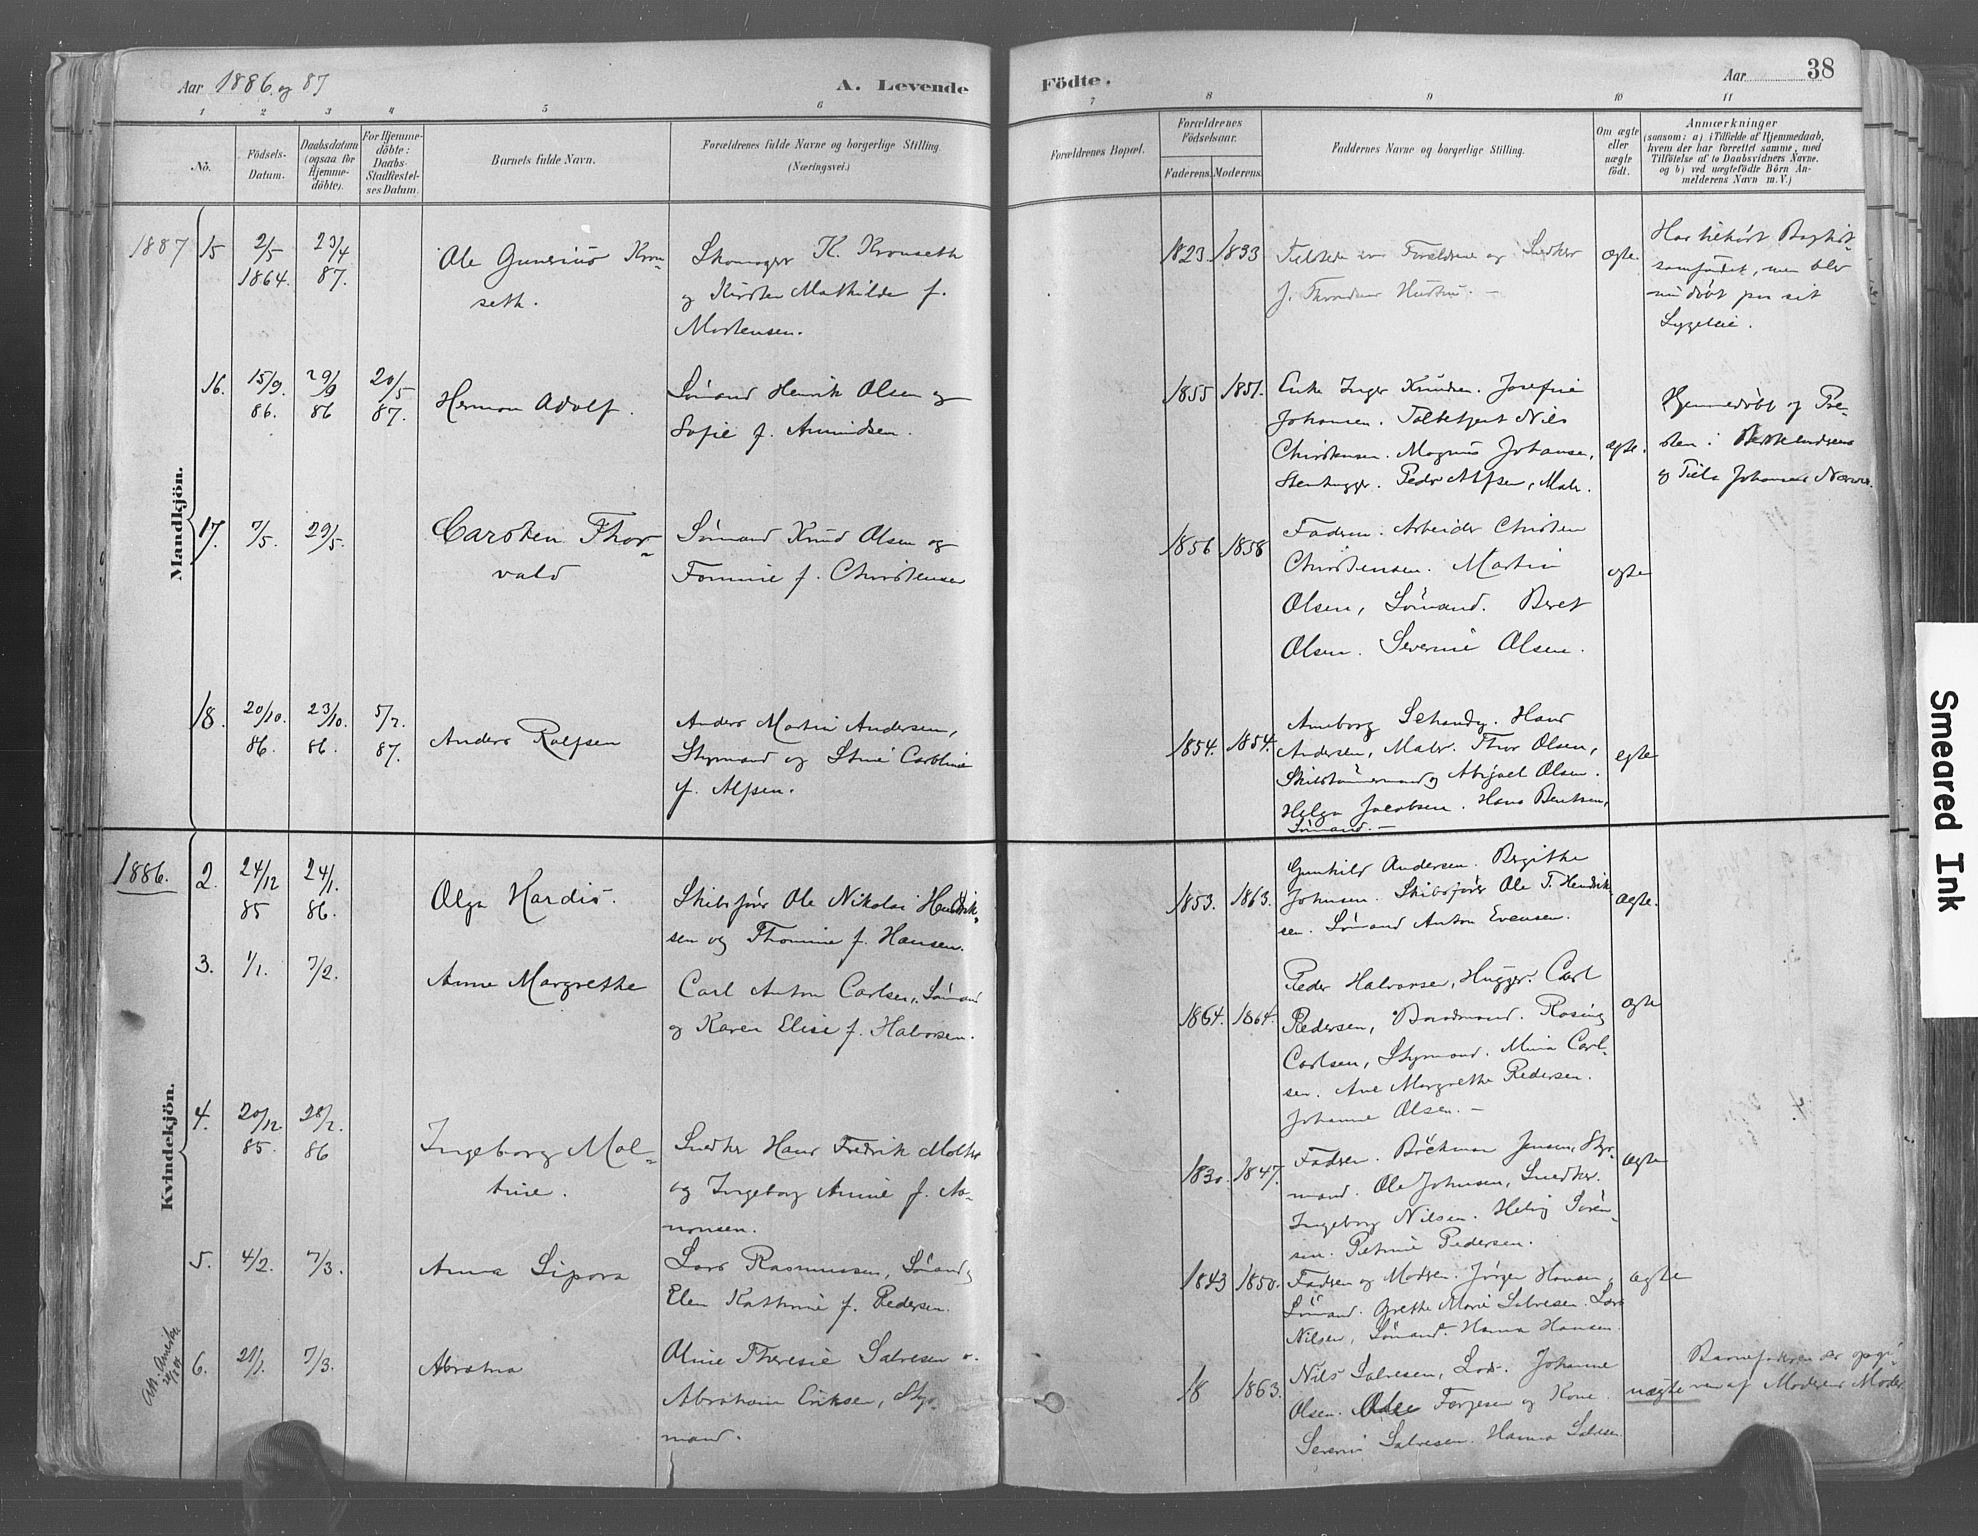 Aar 1886 og 87
A. Levende
Födte.
Aar 38
1 2 3 4 5 6 7 8 9 10 11
No.
Födsels-Datum.
Daabsdatum (ogsaa for Hjemme-döbte).
For Hjemme-döbte: Daabs-Stadfæstel-ses Datum.
Barnets fulde Navn.
Forældrenes fulde Navne og borgerlige Stilling.
(Næringsvei.)
Forældrenes Bopæl.
Forældrenes Födselsaar.
Faderens. Moderens.
Faddernes Navne og borgerlige Stilling.
Om ægte eller uægte födt.
Anmærkninger
(saasom: a) i Tilfælde af Hjemmedaab, hvem der har forrettet samme, med Tilföielse af to Daabsvidners Navne, og b) ved uægtefödte Börn An-melderens Navn m. V.)
Mandkjön.
1887 15 2/5 1864. 23/4 87.
Ole Gunerius Kron-
seth.
Skomager K. Kronseth
og Kirsten Mathilde f.
Mortensen.
1823. 1833
Forældrene og Snedker
Hustru.
ægte.
Har tilhørt Baptist-
samfundet, men blev
nu døbt paa sit
Sygeleie.
16. 15/9 86. 29/9 86 20/5 87.
Herman Adolf.
Sömand Henrik Olsen og
Sofie f. Amundsen.
1855 1851.
Enke Inger Knudsen. Josefine
Johansen. Toldbetjent Nils
Christensen. Magnus Johansen,
Stenhugger. Peder Alfsen, Maler.
ægte.
Hjemmedöbt af Præ-
sten i
og Johansen
17. 7/5. 29/5.
Carsten Thor-
vald
Sömand Knud Olsen og
Tomine f. Christensen
1856 1858
Faderen. Arbeider Christen
Christensen. Martin
Olsen, Sömand. Beret
Olsen. Severine Olsen.
ægte
18. 20/10. 86. 23/10. 86. 5/7. 87.
Anders Rolfsen
Anders Martin Andersen,
Styrmand og Stine Caroline
f. Alfsen.
1854. 1854.
Anneborg Schandy. Hans
Andersen, Maler. Thor Olsen,
Skibstömmermand og Abigael Olsen.
Helga Jacobsen. Hans Bentsen,
Sömand. —
ægte
Kvindekjön.
1886. 2. 24/12 85 24/1. 86.
Olga Hardis.
Skibsförer Ole Nikolai Hendrik-
sen og Thomine f. Hansen.
1853. 1863.
Gunhild Andersen. Birgithe
Johnsen. Skibsförer Ole T. Hendrik-
sen. Sömand Anton Evensen.
ægte.
3. 1/1. 7/2.
Anne Margrethe
Carl Anton Carlsen, Sömand
og Karen Elise f. Halvorsen.
1864. 1864.
Peder Halvorsen, Hugger. Carl
Pedersen, Baadsmand. Rosine
Carlsen, Styrmand. Mina Carl-
sen. Ane Margrethe Pedersen.
Johanne Olsen. —
ægte
4. 20/12 85. 28/2. 86
Ingeborg Mal-
tine.
Snedker Hans Fredrik Molker
og Ingeborg Amine f. Aa-
nonsen.
1830. 1847.
Faderen. Böckman Jensen, Styr-
mand. Ole Johnsen, Snedker.
Ingeborg Nilsen. Helvig Sören-
sen. Petrine Pedersen.
ægte
5. 4/2. 7/3.
Anna Sipora
Lars Rasmussen, Sömand og
Elen Kathrine f. Pedersen.
1843 1850.
Faderen og Moderen. Jörgen Hansen,
Sömand. Grethe Marie Salvesen. Lars
Nilsen, Sömand. Hanna Hansen.
ægte
6. 7/3.
Abrahma
Oline Theresie Salvesen o.
Abraham Eriksen, Styr-
mand.
18 1863.
Nils Salvesen, Lods. Johanne
Olsen. Ole Torjesen og Kone
Severine Salvesen. Hanna Salvesen
uægte
Barnefaderen er opgi-
ven af Moderens Moder
Att. Amerika
Smeared Ink